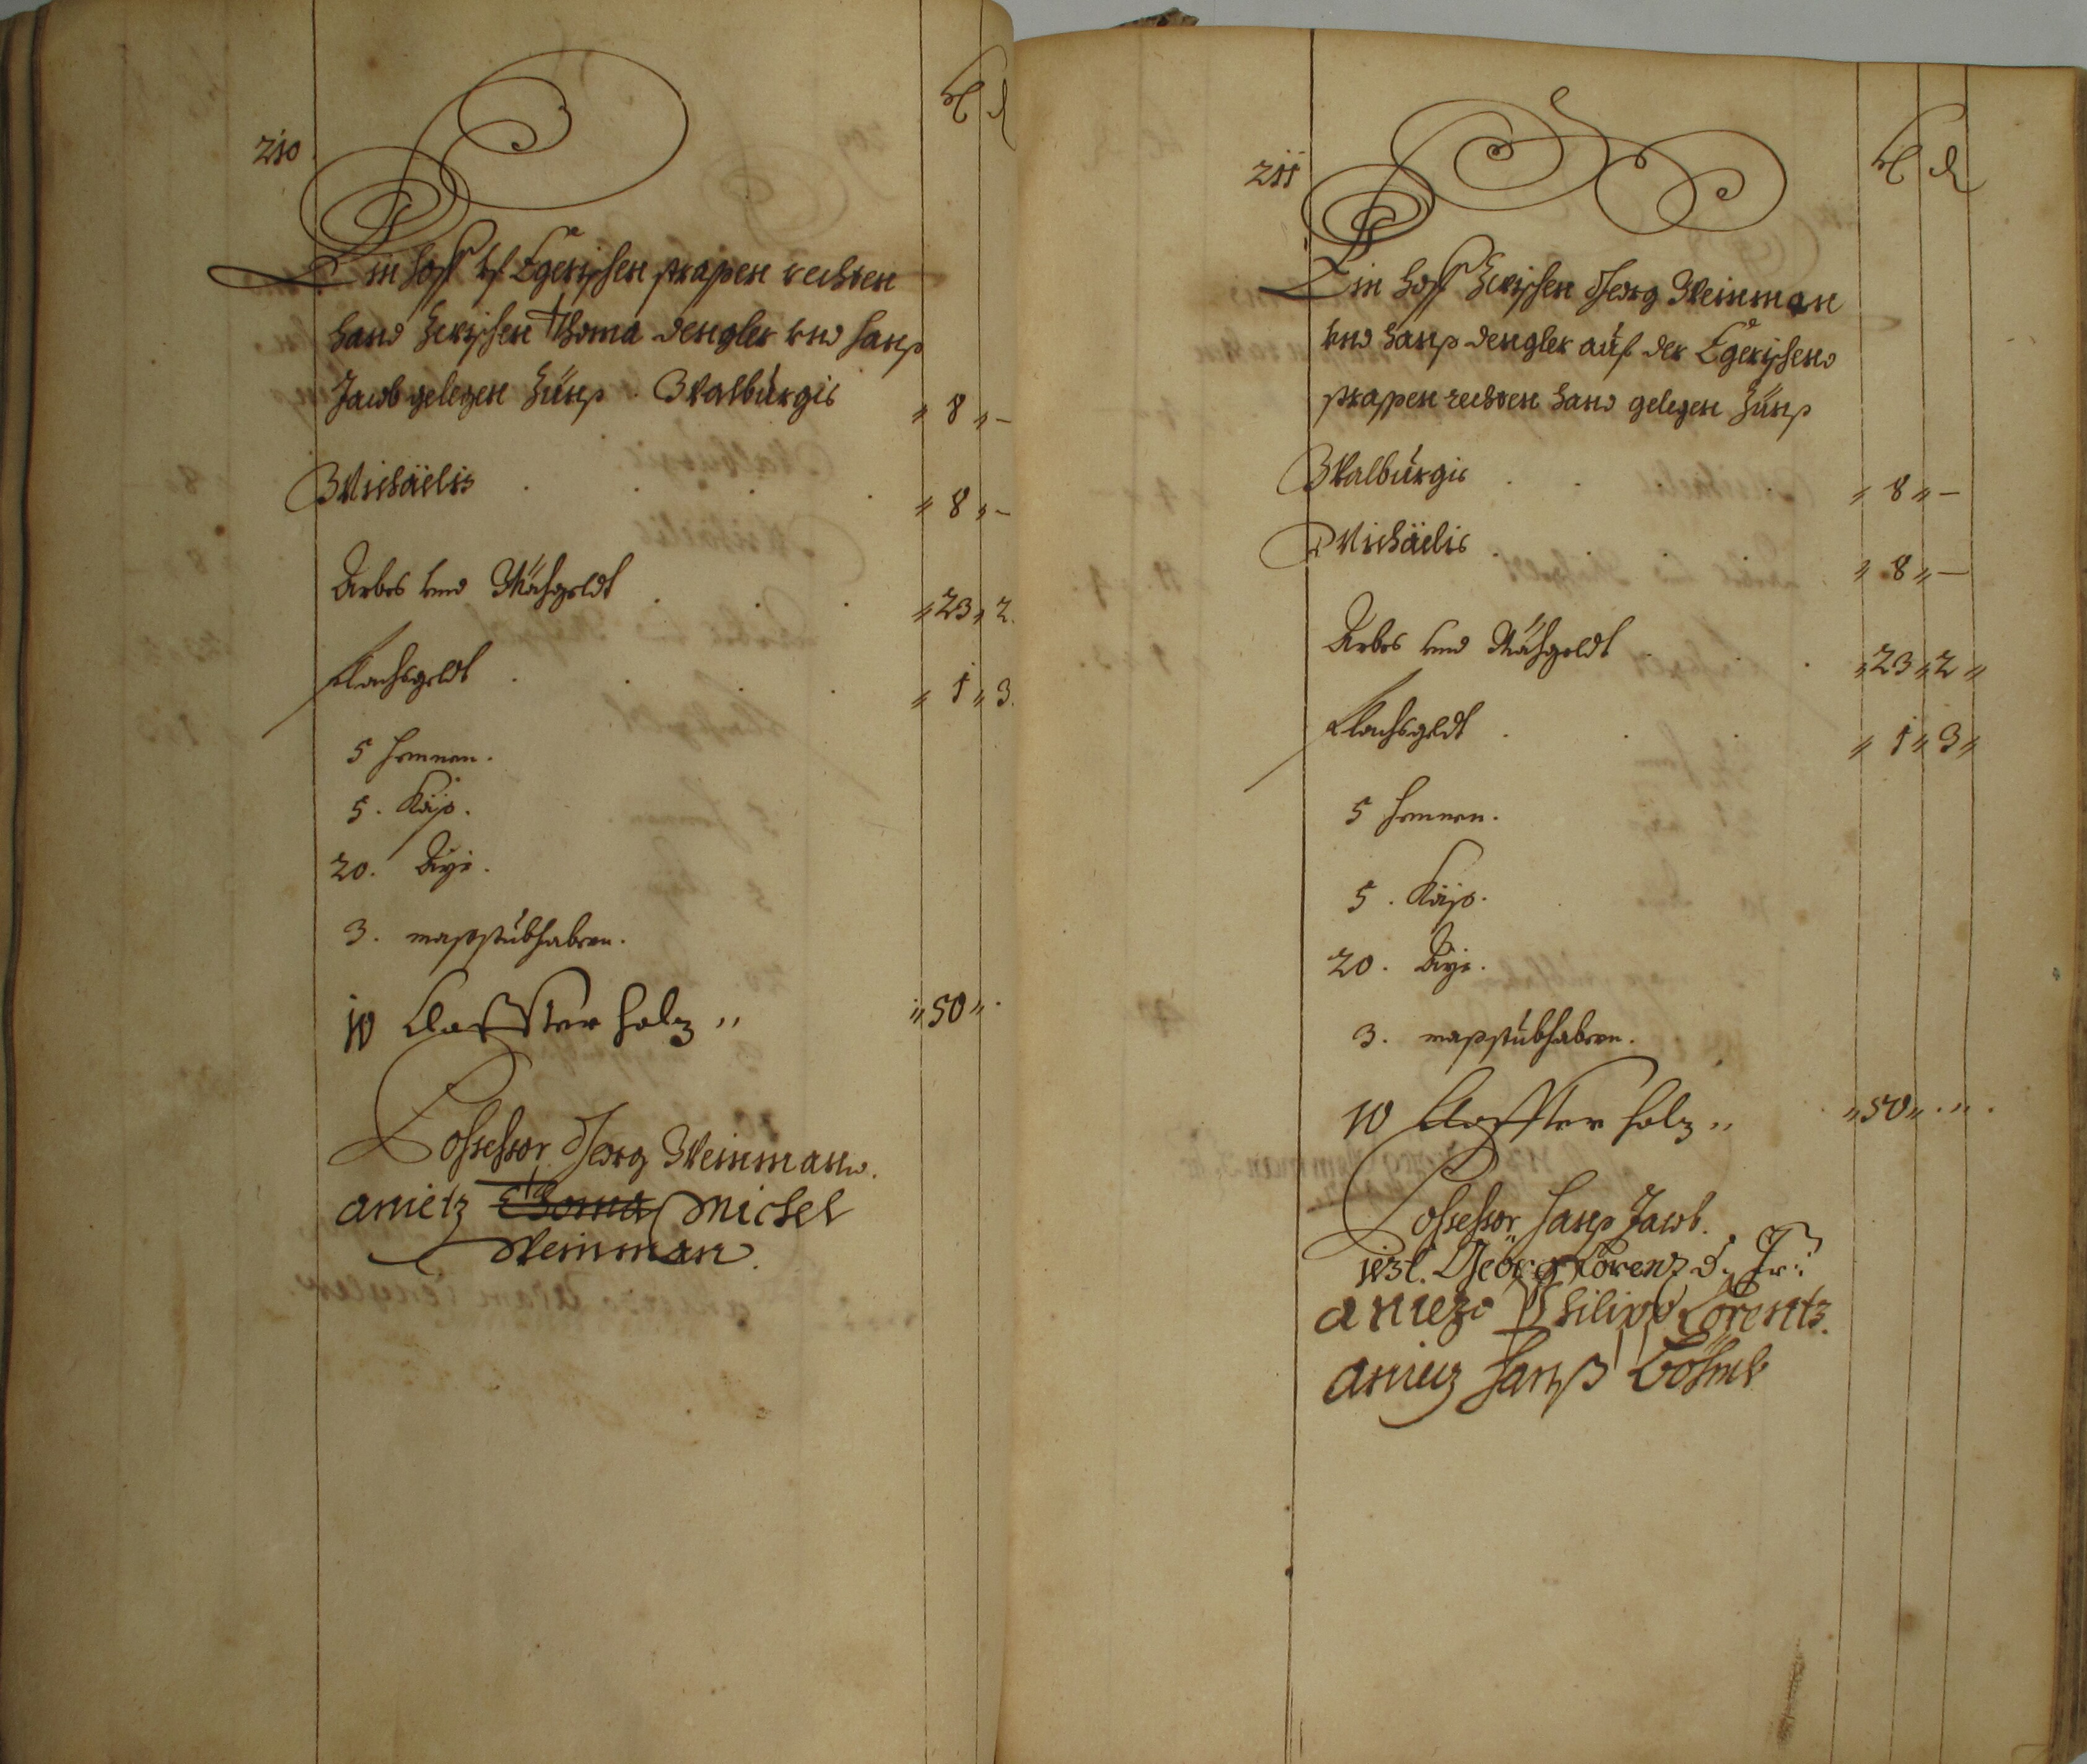 210
kr d
Ein hoff uf Egerischen strassen rechten
hand zwischen Thoma Dengler und hanß
Jacob gelegen Zünß. Walburgis " 8 " –
Michäelis . . . " 8 " –
Arbes und Mähgeldt . . . " 23 " 2.
Flachsgeldt . . . " 1 " 3.
5 hennen.
5. Käß.
20. Ayr.
3. maßstübhabern.
10 Claffter holz " " 50 " .
Possessor Georg Weinmann.
anietz Thoma Michel
Weinman.
211
kr d
Ein hoff zwischen Georg Weinman
und hanß Dengler auf der Egerischen
strassen rechten hand gelegen Zünß
Walburgis . . . " 8 " –
Michäelis . " 8 " –
Arbes und Mähgeldt . . . " 23 " 2 "
Flachsgeldt . . . " 1 " 3 "
5 hennen.
5. Käß.
20. Ayr.
3. maßstübhabern.
10 Claffter holz " " 50 " . " .
Possessor hanß Jacob.
iezt. Georg Lorenz d. Jr:
aniezo Philipp Lorentz.
anietz hanß Böhmb